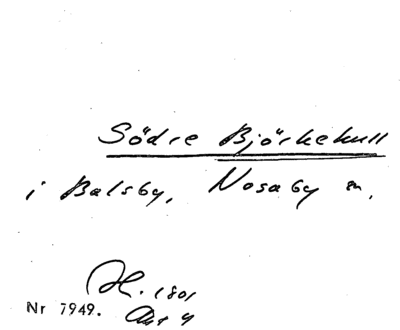 Södre Björkekull
i Balsby, Nosaby sn,
H. 1801
Nr 7949.